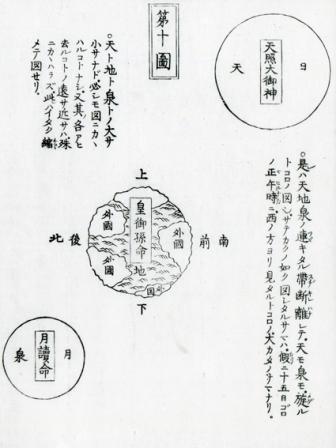 第十圖
日
天照大御神
天
○是ハ天地泉ノ連キタル帶断離レテ、天モ泉モ、旋ル
トコロノ図ニシテカクノ如ク図シタルサマハ、假ニ十五日ゴロ
ノ正午時ニ西ノ方ヨリ見タルトコロノ大カタノサマナリ。
○天ト地ト泉トノ大サ
小サナド、必シモ図ニカヽ
ハルコトナシ。又其各アヒ
去ルコトノ遠サ近サハ、殊
ニカヽハラズ、此ハイタク縮
メテ図セリ。
上
南
前
外國
皇御孫命
地
外國
外國
外国
後
北
下
月
月讀命
泉